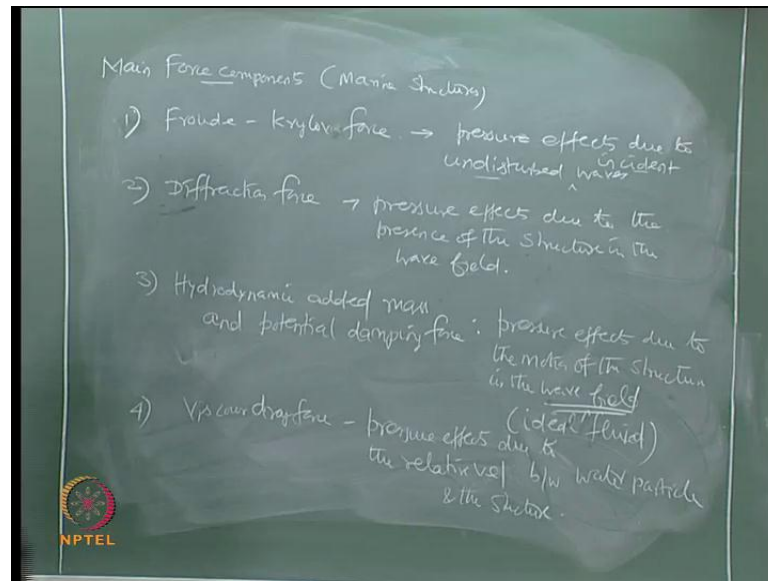 Main Force components (Marine Structures)
1) Froude - Krylov force → pressure effects due to
incident
undisturbed ^ waves
2) Diffraction force → pressure effects due to the
presence of the structure in the
wave field.
3) Hydrodynamic added mass
and potential damping force : pressure effects due to
the motion of the structure
in the wave field
(ideal fluid)
4) Viscous drag force - pressure effects due to
the relative vel b/w water particle
& the structure.
NPTEL